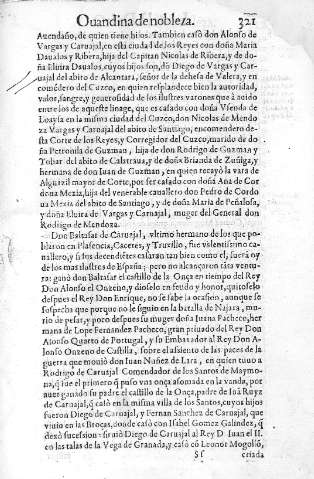 Ouandina de nobleza. 321
Auendaño, de quien tiene hijos. Tambien casò don Alonso de
Vargas y Caruajal, en esta ciudad de los Reyes con doña Maria
Daualos y Ribera, hija del Capitan Nicolas de Ribera, y de do-
ña Eluira Daualos, cuyos hijos son, dō Diego de Vargas y Car-
uajal del abito de Alcantara, señor de la dehesa de Valera, y en
comēdero del Cuzco, en quien resplandece bien la autoridad,
valor, sangre, y generosidad de los ilustres varones que à auido
entre los de aqueste linage, que es casado con doña Vsenda de
Loaysa en la misma ciudad del Cuzco, don Nicolas de Mendo
za Vargas y Carnajal del abito de Santiago, encomendero des-
ta Corte de los Reyes, y Corregidor del Cuzco, marido de do-
ña Petronila de Guzman, hija de don Rodrigo de Guzman y
Tobar del abito de Calatraua, y de doña Brianda de Zuñiga, y
hermana de don Iuan de Guzman, en quien recayò la vara de
Alguazil mayor de Corte, por ser casado con doña Ana de Cor
doua Mexia, hija del venerable cauallero don Pedro de Cordo
ua Mexia del abito de Santiago, y de doña Maria de Peñalosa,
y doña Eluira de Vargas y Carnajal, muger del General don
Rodrigo de Mendoza.
Don Baltasar de Caruajal, vltimo hermano de los que po-
blaron en Plasencia, Caceres, y Truxillo, fue valentissimo ca-
uallero, y si sos decendiētes casaran tan bien como el, fuera vno
de los mas ilustres de España; pero no alcançaron tāta ventu-
ra: ganò don Baltasar el castillo de la Onça en tiempo del Rey
Don Alonso el Onzeno, y dioselo en feudo y honor, quitoselo
despues el Rey Don Enrique, no se sabe la ocasiō, aunque se
sospecha que porque no le siguio en la batalla de Najara, mu-
rio de pesar, y poco despues su muger doña Iuana Pacheco, her
mana de Lope Fernandez Pacheco, gran priuado del Rey Don
Alonso Quarto de Portugal, y su Embaxador al Rey Don A-
lonso Onzeno de Castilla, sobre el assiento de las paces de la
guerra que mouiò don Iuan Nuñez de Lara, en quien tuuo a
Rodrigo de Caruajal Comendador de los Santos de Maymo-
na, q̄ fue el primero q̄ puso vna onça asomada en la vanda, por
auer ganado su padre el castillo de la Onça, padre de Ioā Ruyz
de Caruajal, q̄ casò en la misma villa de los Santos, cuyos hijos
fueron Diego de Caruajal, y Fernan Sanchez de Caruajal, que
viuio en las Broças, donde casò con Isabel Gomez Galindez, q̄
dexò sucession: siruiò Diego de Caruajal al Rey D. Iuan el II.
en las talas de la Vega de Granada, y casò cō Leonor Mogollō,
Sſ criada